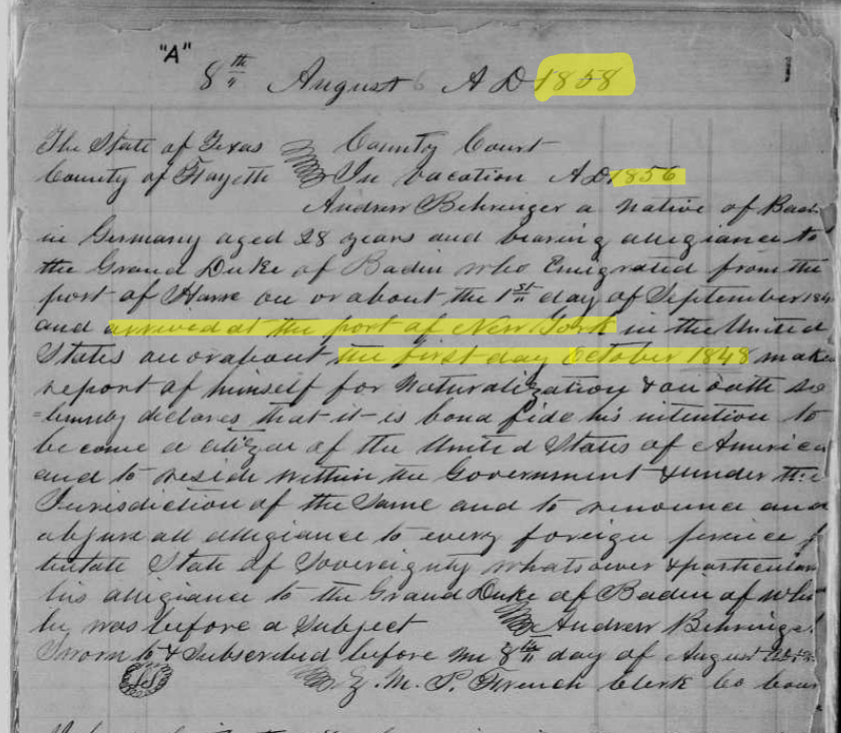 "A"
8th August 6 A D 1858
The State of Texas County Court
County of Fayette In vacation AD 1856
Andrew Behringer a Native of Bad
in Germany aged 28 years and bearing allegiance to
the Grand Duke of Badin who Emigrated from the
port of Havre on or about the 1st day of September 184
and arrived at the port of New York in the United
States on or about the first day October 1848 make
report of himself for Naturalization & on oath so
=lemnly declares that it is bona fide his intention to
become a citizen of the United States of America
and to reside within the Government & under the
Jurisdiction of the Same and to renounce and
abjure all allegiance to every foreign prince
tentate State of Sovereignty whatsoever & particular
his allegiance to the Grand Duke of Badin of who
he was before a Subject Andrew Behringe
Sworn to & Subscribed before me 8th day of August
Z. M. P. French Clerk Co Cour